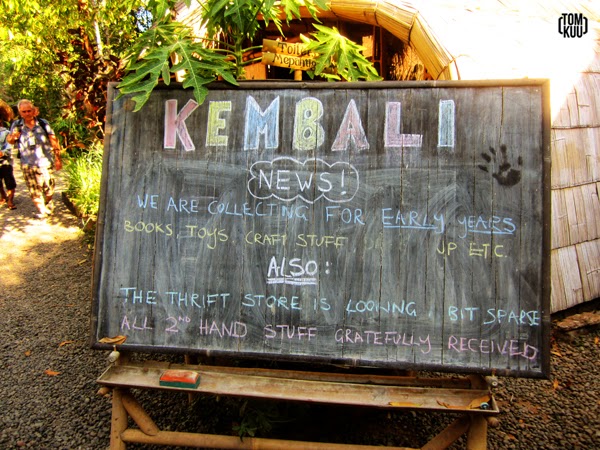 TOM
KUU
TOILE
KEMBALI
NEWS!
WE ARE COLLECTING FOR EARLY YEARS
BOOKS, TOYS, CRAFT STUFF UP ETC.
ALSO:
THE THRIFT STORE IS LOOKING BIT SPARSE
ALL 2ND HAND STUFF GRATEFULLY RECEIVED